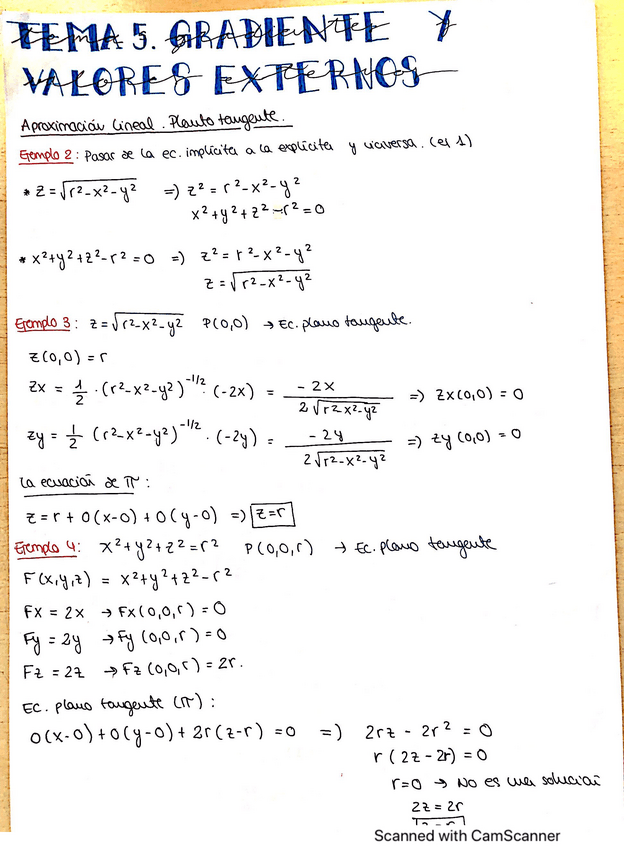 TEMA 5. GRADIENTE Y
VALORES EXTERNOS
Aproximación lineal. Plano tangente.
Ejemplo 2: Pasar de la ec. implícita a la explícita y viceversa. (ej 1)
* z = √(r²-x²-y²) => z² = r²-x²-y²
x²+y²+z²-r² = 0
* x²+y²+z²-r² = 0 => z² = r²-x²-y²
z = √(r²-x²-y²)
Ejemplo 3: z = √(r²-x²-y²) P(0,0) → Ec. plano tangente.
z(0,0) = r
zx = 1/2 · (r²-x²-y²)^(-1/2) · (-2x) = -2x / 2√(r²-x²-y²) => zx(0,0) = 0
zy = 1/2 (r²-x²-y²)^(-1/2) · (-2y) = -2y / 2√(r²-x²-y²) => zy(0,0) = 0
La ecuación de π:
z = r + 0(x-0) + 0(y-0) => z=r
Ejemplo 4: x²+y²+z² = r² P(0,0,r) → Ec. plano tangente
F(x,y,z) = x²+y²+z²-r²
Fx = 2x → Fx(0,0,r) = 0
Fy = 2y → Fy(0,0,r) = 0
Fz = 2z → Fz(0,0,r) = 2r.
Ec. plano tangente (π):
0(x-0)+0(y-0)+2r(z-r) = 0 => 2rz - 2r² = 0
r(2z-2r) = 0
r=0 → No es una solución
2z = 2r
Scanned with CamScanner